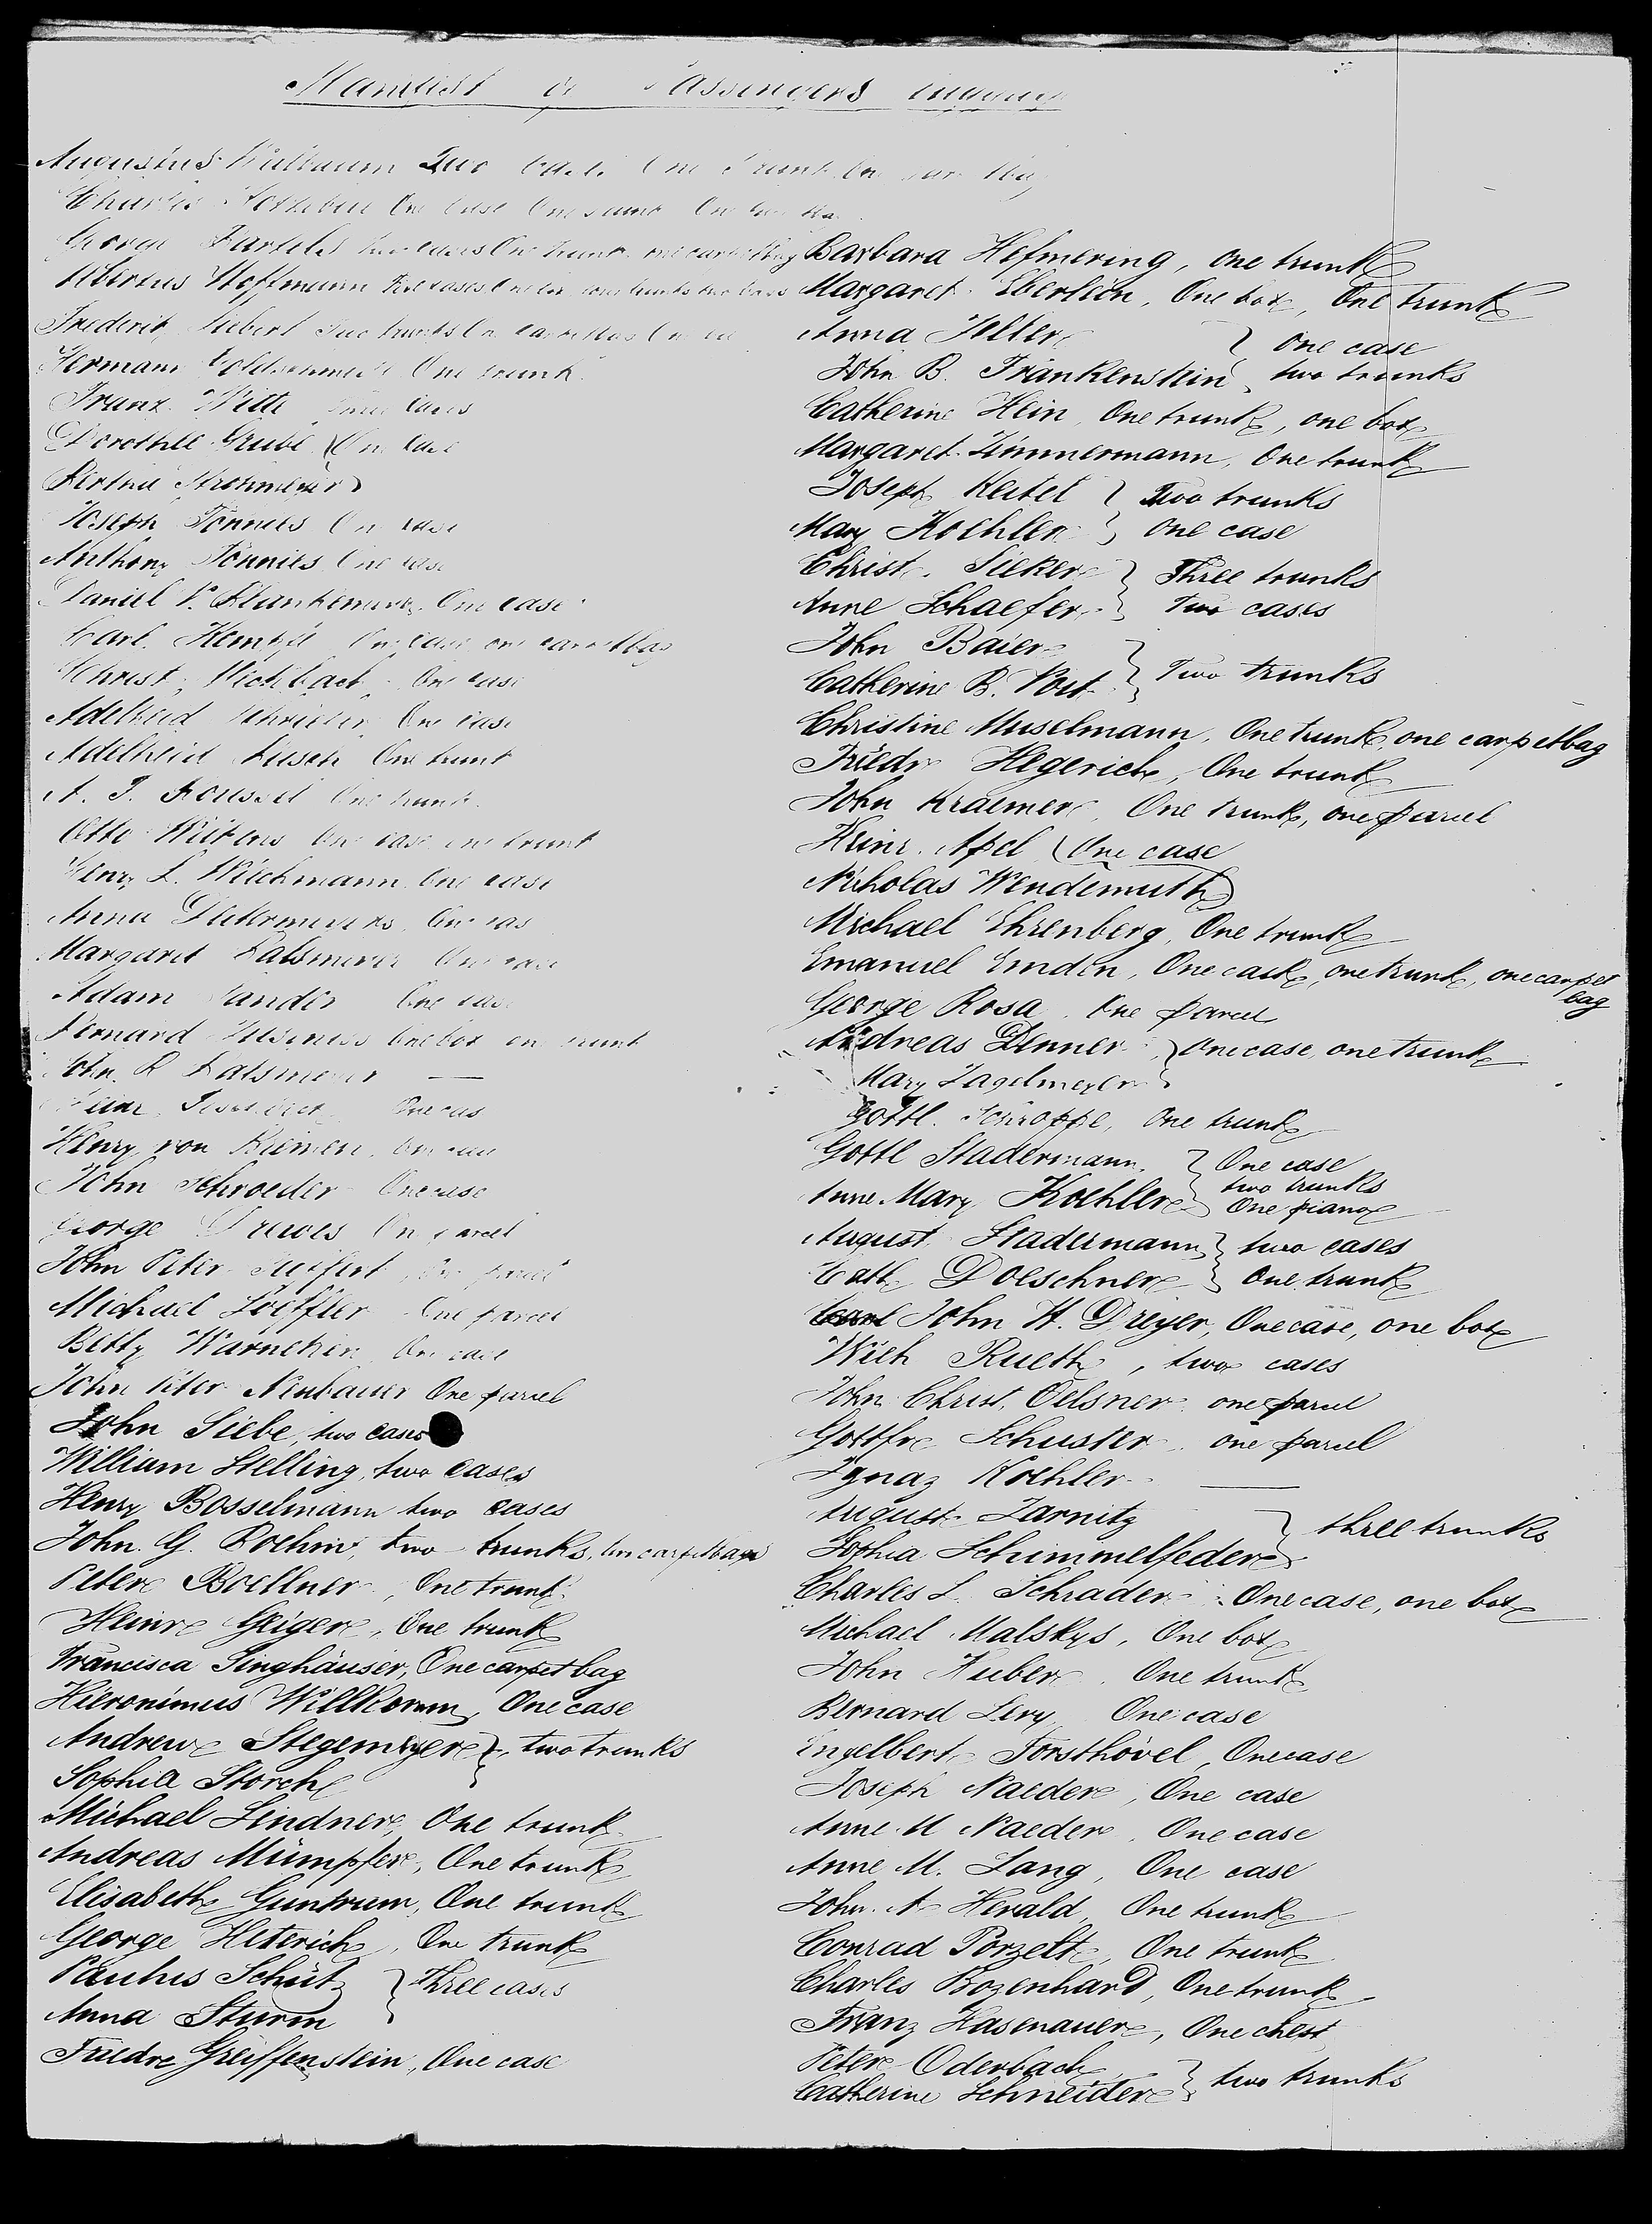 Manifest of Passengers
Augustus Two One Trunk One
Charles One case One One
George Bartels two cases One trunk one carpetbag
Albertus Hoffmann
Frederik Siebert Two trunks One
Hermann Goldschmidt One trunk
Franz Witte three cases
Dorothee Grube } One case
Bertha Strohmeyer }
Joseph Tönnies One case
Anthony Tönnies One case
Daniel One case
Carl One case one carpetbag
Christ. One case
Adelheid One case
Adelheid One trunk
A. J. Roussel One trunk
Otto Wilkens One case one trunk
Henry L. Wichmann One case
Anna One case
Margaret Dalsmeyer One case
Adam Sander One case
Bernard One box one trunk
John R Dalsmeyer —
Heinr. One case
Henry von Riemen, One case
John Schroeder One case
George Drewes One parcel
John Peter Seifert, One parcel
Michael Loeffler One parcel
Betty Warneken One case
John Peter Neubauer One parcel
John Siebe, two cases
William Stelling, two cases
Henry Bosselmann two cases
John. G. Boehm, two trunks, one carpetbag
Peter Boellner, One trunk
Heinr Geiger, One trunk
Francisca Singhäuser, One carpet bag
Hieronimus Willkomm, One case
Andrew Stegemeyer }, two trunks
Sophia Storch }
Michael Lindner, One trunk
Andreas Mümpfer, One trunk
Elisabeth Guntrum, One trunk
George Heterich, One trunk
Paulus Schütz } Three cases
Anna Sturm }
Friedr Greiffenstein, One case
Barbara Hefmering, one trunk
Margaret Eberlein, One box, One trunk
Anna } one case
John B. Frankenstein, two trunks
Catherine Hein, One trunk, one box
Margaret Zimmermann, One trunk
Joseph Keitel } Two trunks
Mary Koehler } one case
Christ. Sieker } Three trunks
Anne Schaefer } Two cases
John Baier }
Catherine B. Post } Two trunks
Christine Muselmann, One trunk, one carpetbag
Friedr Hegerich, One trunk
John Kraemer, One trunk, one parcel
Heinr. Apel } One case
Nicholas Wendemuth }
Michael Ehrenberg, One trunk
Emanuel Emden, One cask, one trunk, one carpet
bag
George Rosa, One parcel
Andreas Denner } One case, one trunk
Mary Hagelmeyer }
Gottl. Schroppe, One trunk
Gottl Stadermann, } One case
two trunks
Anne Mary Koehler } One piano
August Stadermann } two cases
Cath Doeschner } One trunk
John H. Dreyer, One case, one box
Wilh Rueth, two cases
John Christ. Oelsner, one parcel
Gottfr Schuster, one parcel
Ignaz Koehler —
August Zarnitz } three trunks
Sophia Schimmelfeder }
Charles L. Schrader, One case, one box
Michael Malskys, One box
John Huber, One trunk
Bernard Levy, One case
Engelbert Forsthövel, One case
Joseph Naeder, One case
Anne M Naeder, One case
Anne M. Lang, One case
John. A Herald, One trunk
Conrad Porzelt, One trunk
Charles Bozenhard, One trunk
Franz Hasenauer, One chest
Peter Oderbach } two trunks
Catherine Schneider }